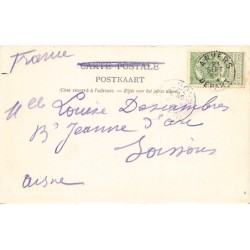 France
CARTE POSTALE
POSTKAART
Côté réservé à l'adresse. — Zijde voor het adres alleen.
ANVERS
DEPART
Mlle Louise Descambres
Bd Jeanne d'arc
Soissons
aisne